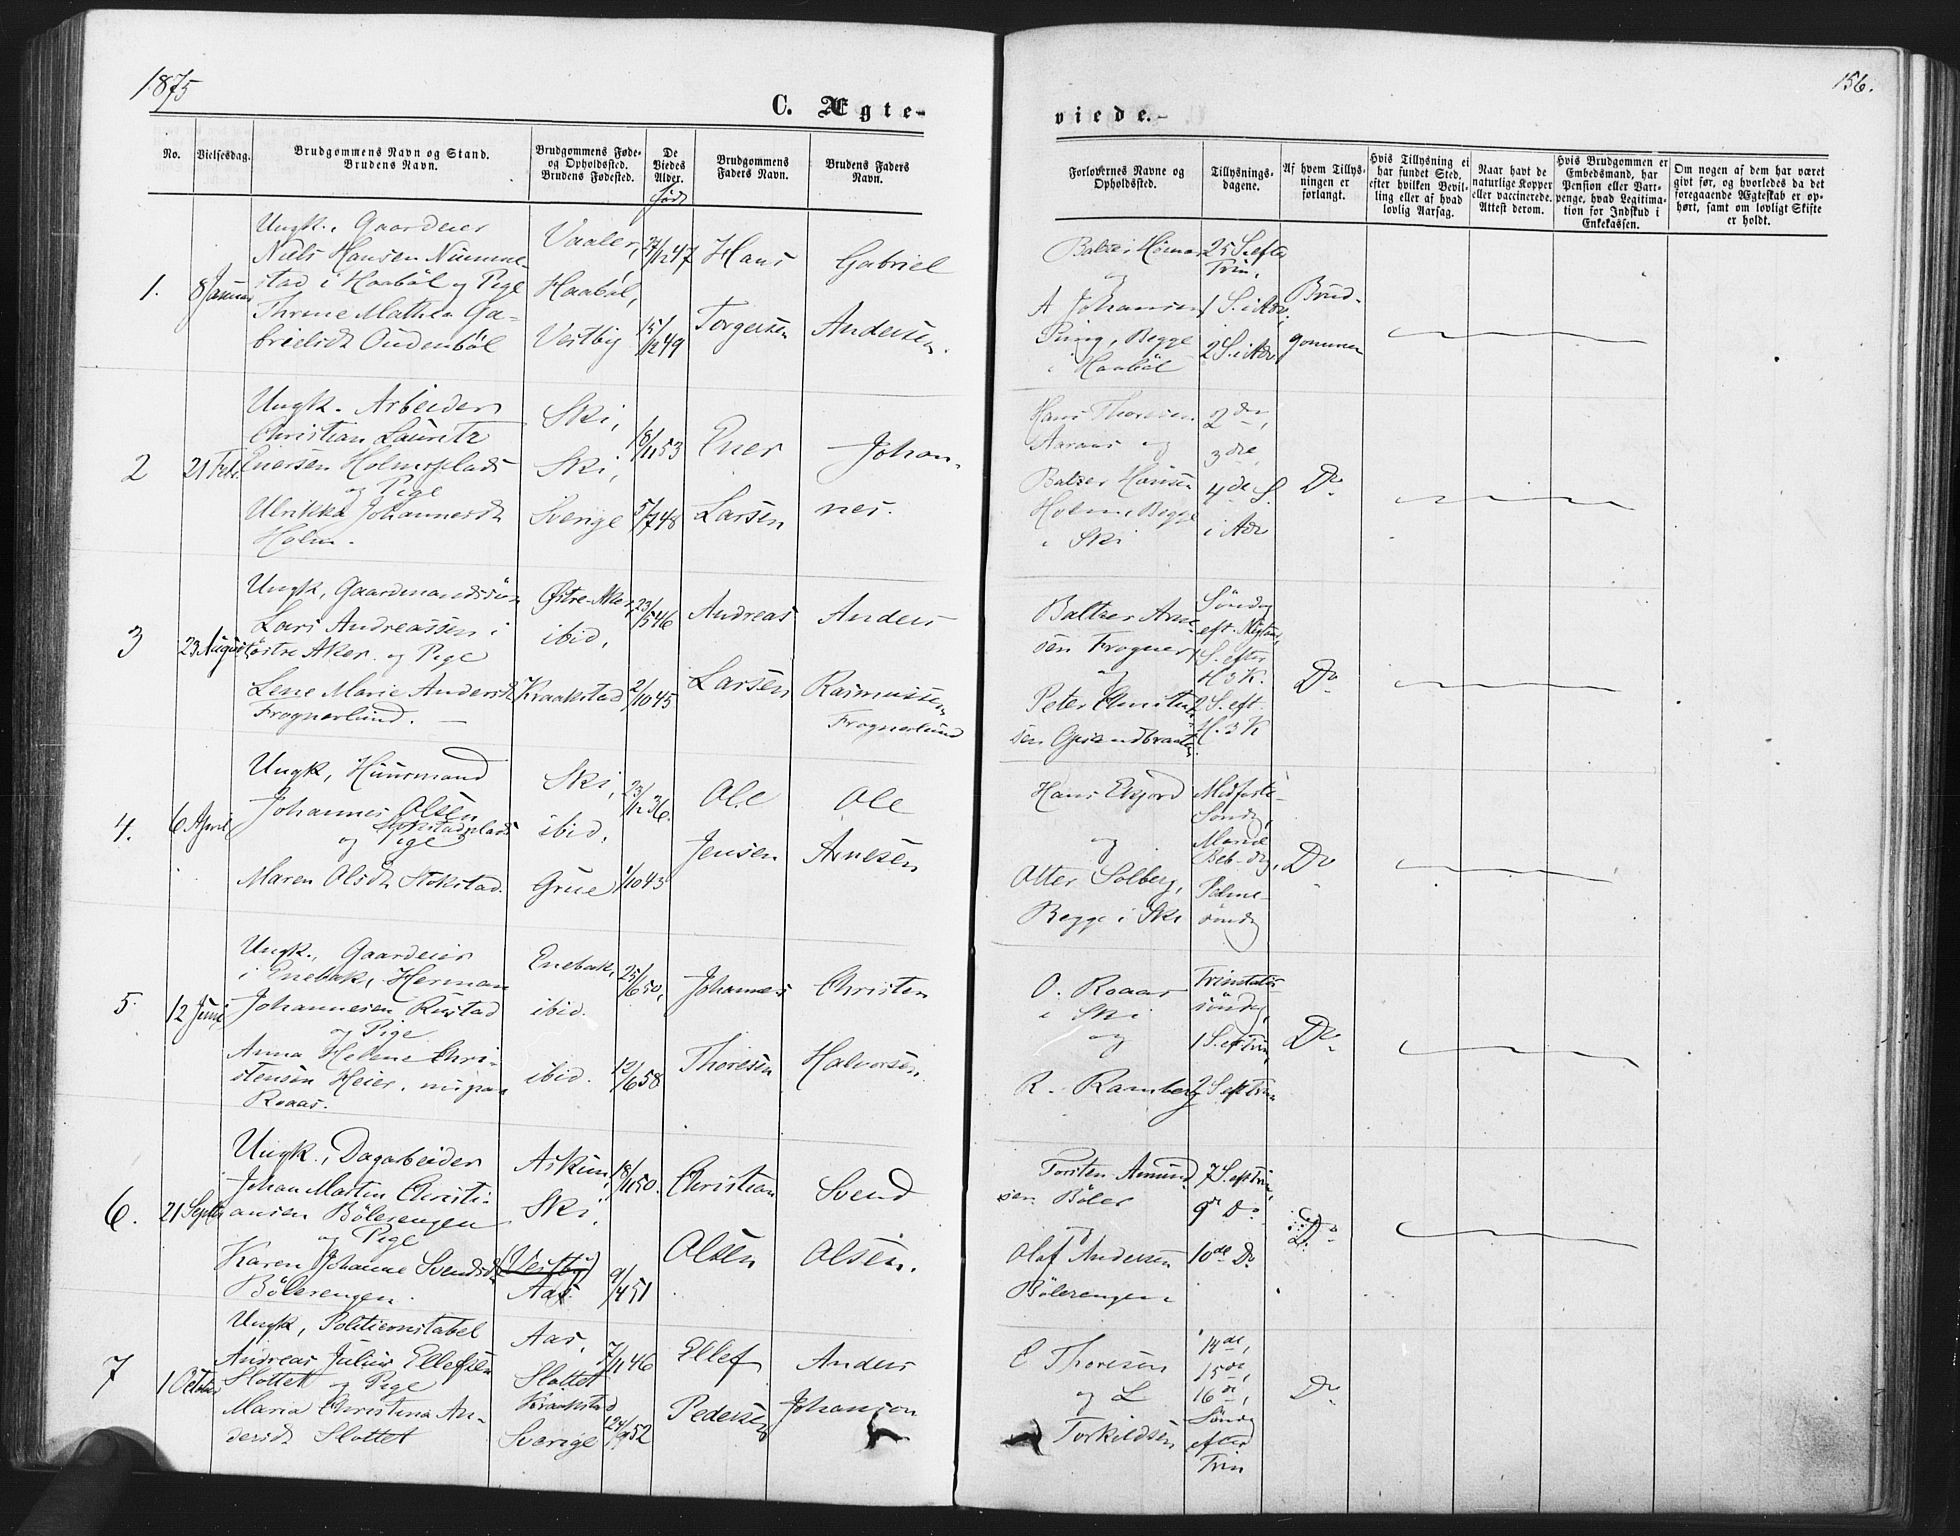 1875
156.
C. Ægte-
viede.
No.
Vielsesdag.
Brudgommens Navn og Stand.
Brudens Navn.
Brudgommens Føde-
og Opholdssted.
Brudens Fødested.
De
Viedes
Alder.
født
Brudgommens
Faders Navn.
Brudens Faders
Navn.
Forlovernes Navne og
Opholdssted.
Tillysnings-
dagene.
Af hvem Tillys-
ningen er
forlangt.
Hvis Tillysning ei
har fundet Sted,
efter hvilken Bevil-
ling eller af hvad
lovlig Aarsag.
Naar havt de
naturlige Kopper
eller vaccinerede.
Attest derom.
Hvis Brudgommen er
Embedsmand, har
Pension eller Vart-
penge, hvad Legitima-
tion for Indskud i
Enkekassen.
Om nogen af dem har været
givt før, og hvorledes da det
foregaaende Ægteskab er op-
hørt, samt om lovligt Skifte
er holdt.
1.
8 Januar
Ungk., Gaardeier
Niels Hansen Nimme-
stad i Haabøl og Pige
Threne Mathea Ga-
brielsdt Oudenbøl
Vaaler,
Haabøl,
Vestby
27/12 47
15/12 49
Hans
Torgersen
Gabriel
Andersen.
og
A Johansen
Begge
i Haabøl
25 S. efter
Trin,
1 S. i Adv,
2 S. i Adv
Brud-
gommen
2
21 Feb.
Ungk. Arbeider
Christian Lauritz
Enersen Holmsplads
og Pige
Ulrikka Johannesdt
Holm.
Ski,
Ski,
Sverige
18/11 53
5/7 48
Ener
Larsen
Johan-
nes.
Hans Thoresen
Aaraas og
Baltzer Hansen
Holm, Begge
i Ski
2den,
3die,
4de S.
i Adv
Do
3
23 August
Ungk, Gaardmandssøn
Lars Andreassen i
østre Aker og Pige
Lene Marie Andersdt
Frognerlund.
Østre Aker,
ibid,
Kraakstad
23/5 46
2/10 45
Andreas
Larsen
Anders
Rasmussen
Frognerlund
Baltzer Arne-
sen Frogner
og
Peter Christen-
sen
Søndag
eft. Nytaar,
1 S. efter
H 3 K.
2 S. eft.
H. 3 K
Do
4.
6 April
Ungk, Huusmand
Johannes Olsen
Stokstadplads
og Pige
Maren Olsdt Stokstad.
Ski,
ibid,
Grue
23/12 36.
1/10 43
Ole
Jensen
Ole
Arnesen
Hans Eksjord
og
Otter Solberg,
Begge i Ski
Midfaste-
Søndg,
Mariæ
Beb. dg,
Palme-
søndg
Do
5.
12 Juni
Ungk., Gaardeier
i Enebak, Herman
Johannesen Rustad
og Pige
Anna Helene Chri-
stensen Heier, nu paa
Roaas.
Enebak,
ibid.
ibid.
25/6 50,
12/6 58
Johannes
Thoresen
Christen
Halvorsen
O. Roaas
i Ski
og
R. Ramberg
Trinitatis
søndag,
1 S. ef Trin,
2 S. eft Trin
Do
6.
21 Septbr
Ungk., Dagarbeider
Johan Martin Christi-
ansen Bølerengen
og Pige
Karen Johanne Svendsdt
Bølerengen.
Askim,
Ski,
(Vestby)
Aas
18/11 50.
9/4 51
Christian
Olsen
Svend
Olsen.
Torsten Amund-
sen Bøler
og
Olaf Andersen
Bølerengen
7 S. eft Trin,
9de Do
10de Do
Do
7
1 October
Ungk, Politiconstabel
Andreas Julius Ellefsen
Slottet og Pige
Maria Christina An-
dersdt Slottet
Aas,
Slottet
Kraakstad
Sverige
7/11 46
24/9 52
Ellef
Pedersen
Anders
Johanson
E Thoresen
og L
Torkildsen
14de,
15de,
16de,
Søndg
efter
Trin
Do